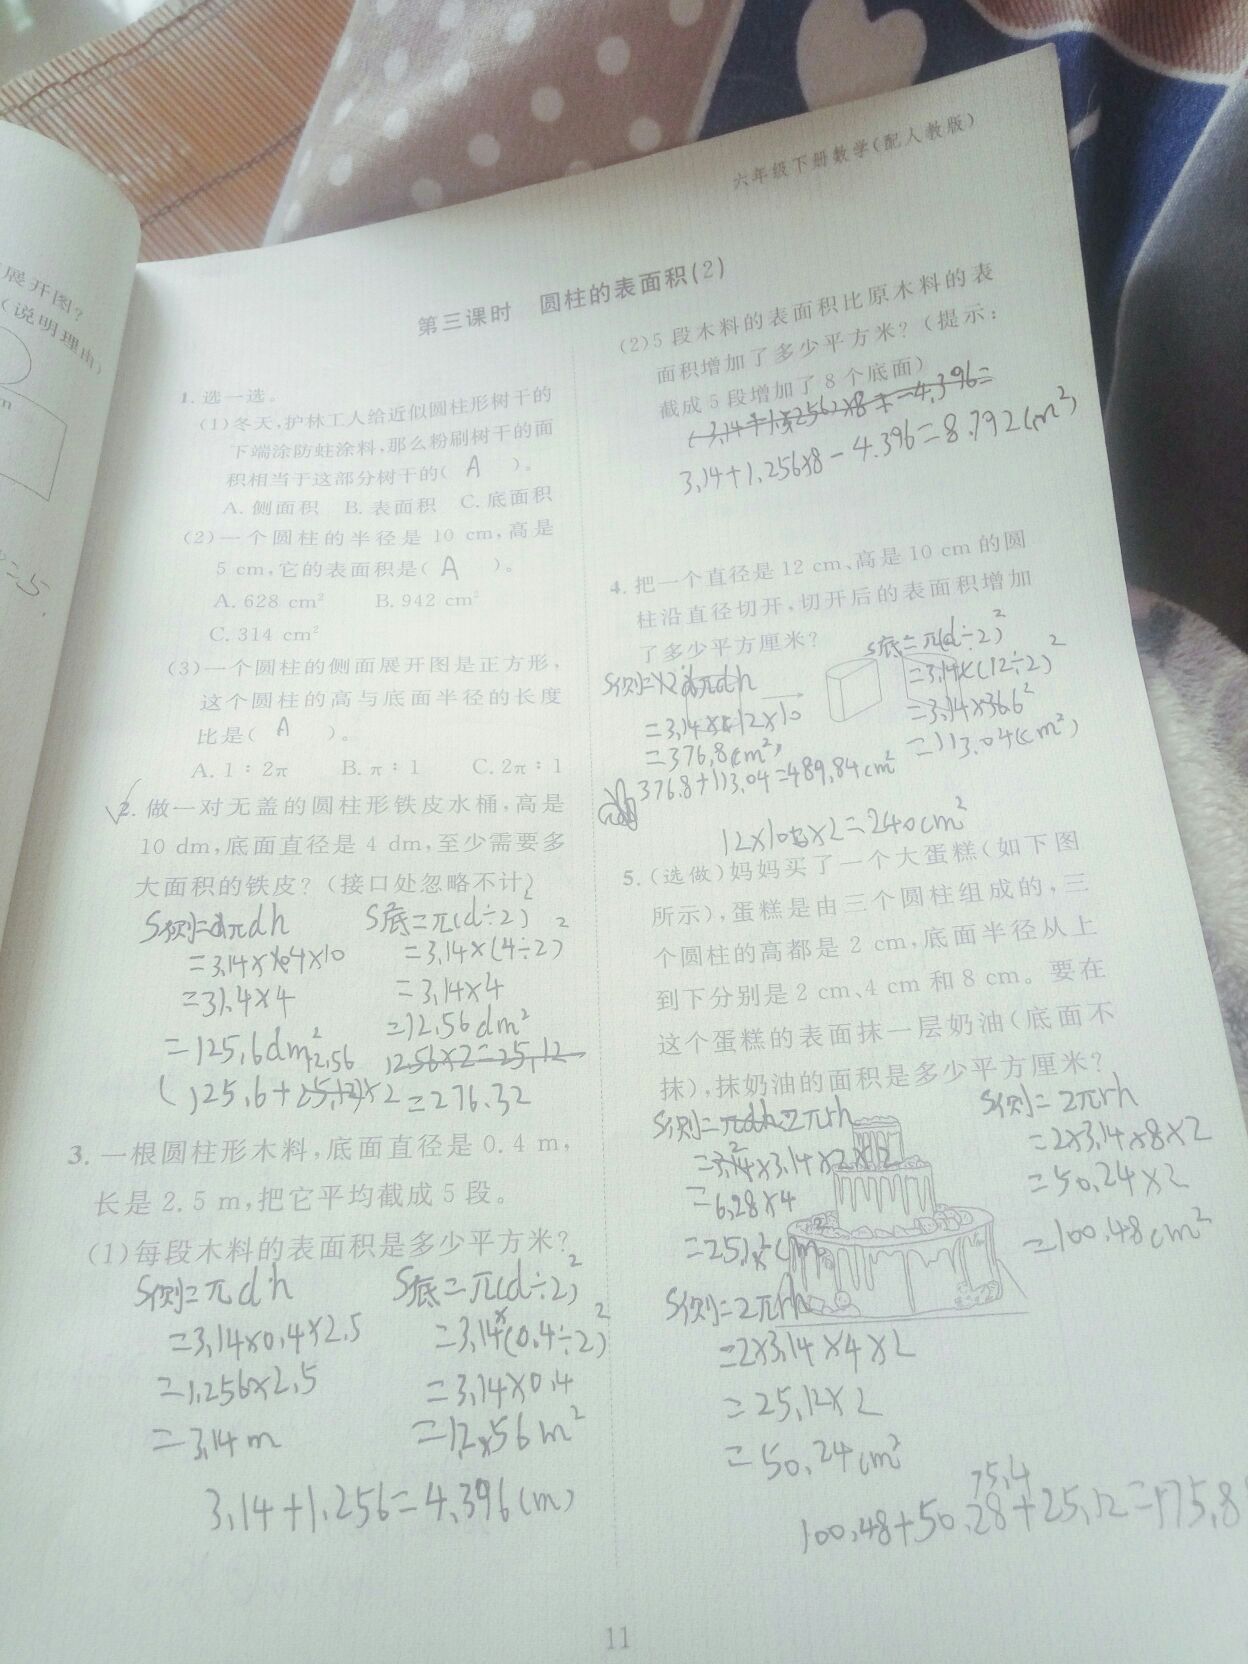 展开图?
(说明理由)
六年级下册数学(配人教版)
第三课时 圆柱的表面积(2)
1. 选一选。
(1)冬天,护林工人给近似圆柱形树干的
下端涂防蛀涂料,那么粉刷树干的面
积相当于这部分树干的( A )。
A. 侧面积 B. 表面积 C. 底面积
(2)一个圆柱的半径是 10 cm,高是
5 cm,它的表面积是( A )。
A. 628 cm² B. 942 cm²
C. 314 cm²
(3)一个圆柱的侧面展开图是正方形,
这个圆柱的高与底面半径的长度
比是( A )。
A. 1∶2π B. π∶1 C. 2π∶1
2. 做一对无盖的圆柱形铁皮水桶,高是
10 dm,底面直径是 4 dm,至少需要多
大面积的铁皮?(接口处忽略不计)
S侧=πdh
=3.14×4×10
=31.4×4
=125.6dm²
S底=π(d÷2)²
=3.14×(4÷2)²
=3.14×4
=12.56dm²
12.56×2=25.12
12.56
(125.6+25.12)×2=276.32
3. 一根圆柱形木料,底面直径是 0.4 m,
长是 2.5 m,把它平均截成 5 段。
(1)每段木料的表面积是多少平方米?
S侧=πdh
=3.14×0.4×2.5
=1.256×2.5
=3.14m
S底=π(d÷2)²
=3.14×(0.4÷2)²
=3.14×0.4
=12.56m²
3.14+1.256=4.396(m)
(2)5 段木料的表面积比原木料的表
面积增加了多少平方米?(提示:
截成 5 段增加了 8 个底面)
3.14+1.256×8-4.396=8.792(m²)
4. 把一个直径是 12 cm、高是 10 cm 的圆
柱沿直径切开,切开后的表面积增加
了多少平方厘米?
S侧=πdh
=3.14×12×10
=376.8(cm²)
S底=π(d÷2)²
=3.14×(12÷2)²
=3.14×36
=113.04(cm²)
376.8+113.04=489.84cm²
12×10×2=240cm²
5. (选做)妈妈买了一个大蛋糕(如下图
所示),蛋糕是由三个圆柱组成的,三
个圆柱的高都是 2 cm,底面半径从上
到下分别是 2 cm、4 cm 和 8 cm。要在
这个蛋糕的表面抹一层奶油(底面不
抹),抹奶油的面积是多少平方厘米?
S侧=πdh=2πrh
=2×3.14×2×2
=6.28×4
=25.12cm
S侧=2πrh
=2×3.14×8×2
=50.24×2
=100.48cm²
S侧=2πrh
=2×3.14×4×2
=25.12×2
=50.24cm²
75.4
100.48+50.28+25.12=175.8
11